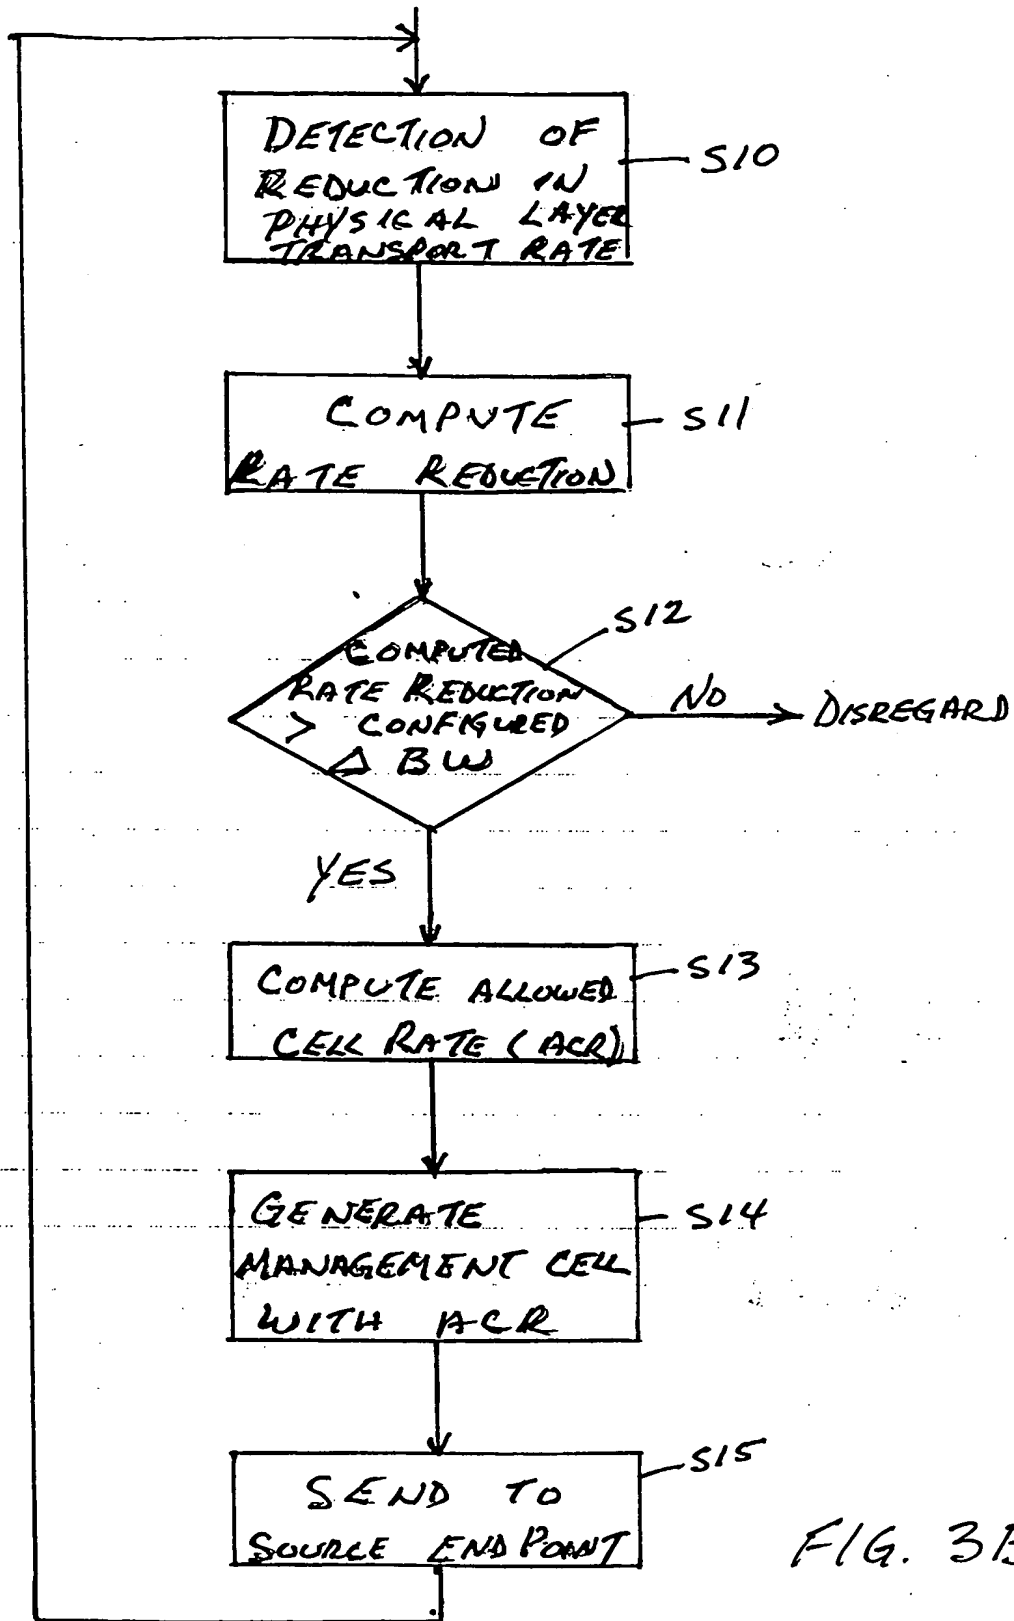 DETECTION OF
REDUCTION IN
PHYSICAL LAYER
TRANSPORT RATE
S10
COMPUTE
RATE REDUCTION
S11
S12
COMPUTED
RATE REDUCTION
> CONFIGURED
Δ BW
NO
DISREGARD
YES
COMPUTE ALLOWED
CELL RATE (ACR)
S13
GENERATE
MANAGEMENT CELL
WITH ACR
S14
SEND TO
SOURCE ENDPOINT
S15
FIG. 3B